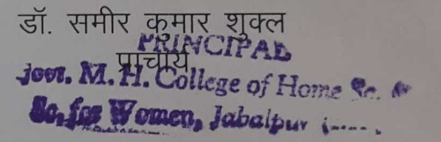 डॉ. समीर कुमार शुक्ल
प्राचार्य
PRINCIPAL
M. H. College of Home Sc. &
Sc. for Women, Jabalpur